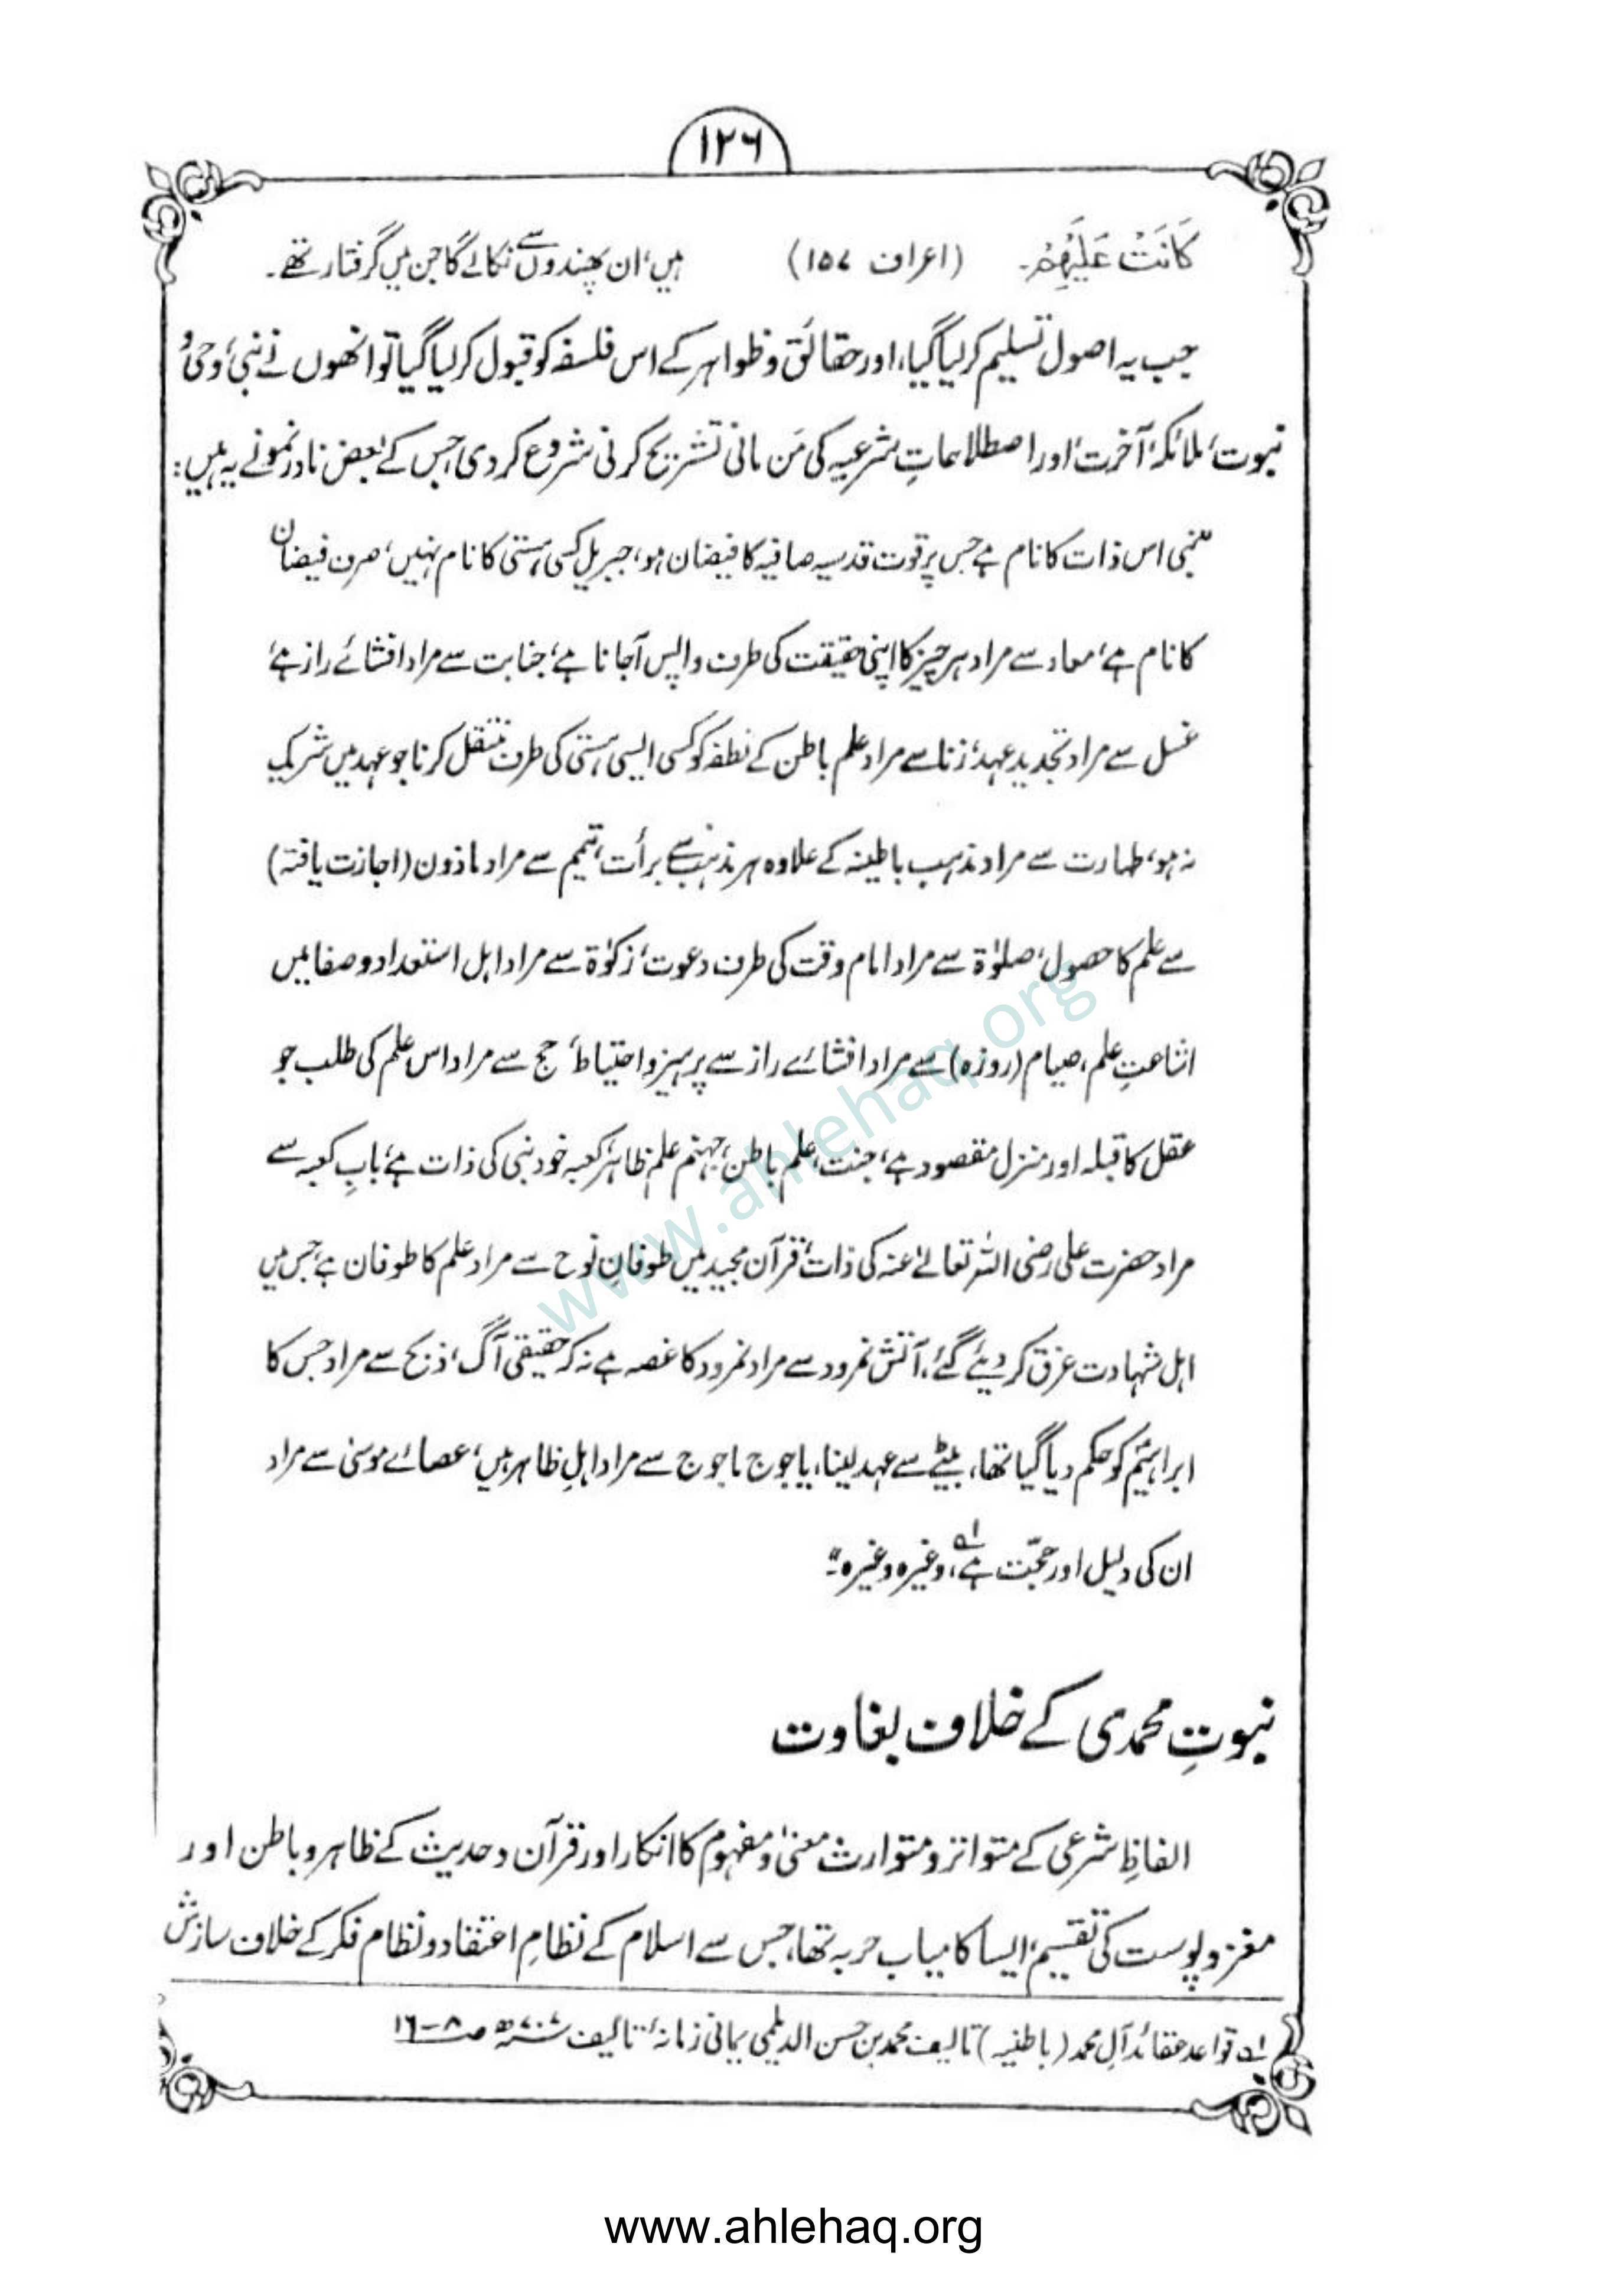 ۱۲۶
كَانَتْ عَلَيْهِمْ۔ (اعراف ۱۵۷) ہیں، ان پھندوں سے نکالے گا جن میں گرفتار تھے۔
جب یہ اصول تسلیم کر لیا گیا، اور حقائق و ظواہر کے اس فلسفہ کو قبول کر لیا گیا تو انھوں نے نبی، وحی و
نبوت، ملائکہ، آخرت، اور اصطلاحاتِ شرعیہ کی مَن مانی تشریح کرنی شروع کر دی، جس کے بعض نادر نمونے یہ ہیں:
"نبی اس ذات کا نام ہے جس پر قوت قدسیہ صافیہ کا فیضان ہو، جبریل کسی ہستی کا نام نہیں، صرف فیضان
کا نام ہے، معاد سے مراد ہر چیز کا اپنی حقیقت کی طرف واپس آجانا ہے، جنابت سے مراد افشائے راز ہے،
غسل سے مراد تجدید عہد، زنا سے مراد علم باطن کے نطفہ کو کسی ایسی ہستی کی طرف منتقل کرنا جو عہد میں شریک
نہ ہو، طہارت سے مراد مذہب باطینہ کے علاوہ ہر مذہب سے برأت، تیمم سے مراد ماذون (اجازت یافتہ)
سے علم کا حصول، صلوٰۃ سے مراد امام وقت کی طرف دعوت، زکوٰۃ سے مراد اہل استعداد و صفا میں
اشاعتِ علم، صیام (روزہ) سے مراد افشائے راز سے پرہیز و احتیاط، حج سے مراد اس علم کی طلب جو
عقل کا قبلہ اور منزل مقصود ہے، جنت، علم باطن، جہنم علم ظاہر، کعبہ خود نبی کی ذات ہے، بابِ کعبہ سے
مراد حضرت علی رضی اللہ تعالےٰ عنہ کی ذات، قرآن مجید میں طوفانِ نوح سے مراد علم کا طوفان ہے، جس میں
اہل شہادت غرق کر دیئے گئے، آتش نمرود سے مراد نمرود کا غصہ ہے نہ کہ حقیقی آگ، ذبح سے مراد جس کا
ابراہیمؑ کو حکم دیا گیا تھا، بیٹے سے عہد لینا، یاجوج ماجوج سے مراد اہلِ ظاہر ہیں، عصائے موسیٰ سے مراد
ان کی دلیل اور حجّت ہے ۱ھ، وغیرہ وغیرہ"۔
نبوتِ محمدی کے خلاف بغاوت
الفاظِ شرعی کے متواتر و متوارث معنیٰ و مفہوم کا انکار اور قرآن و حدیث کے ظاہر و باطن اور
مغز و پوست کی تقسیم، ایسا کامیاب حربہ تھا، جس سے اسلام کے نظامِ اعتقاد و نظام فکر کے خلاف سازش
۱ھ قواعد عقائد آلِ محمد (باطنیہ) تالیف محمد بن حسن الدیلمی یمانی زمانۂ تالیف ۷۰۷ھ ص ۸-۱۶
www.ahlehaq.org
www.ahlehaq.org